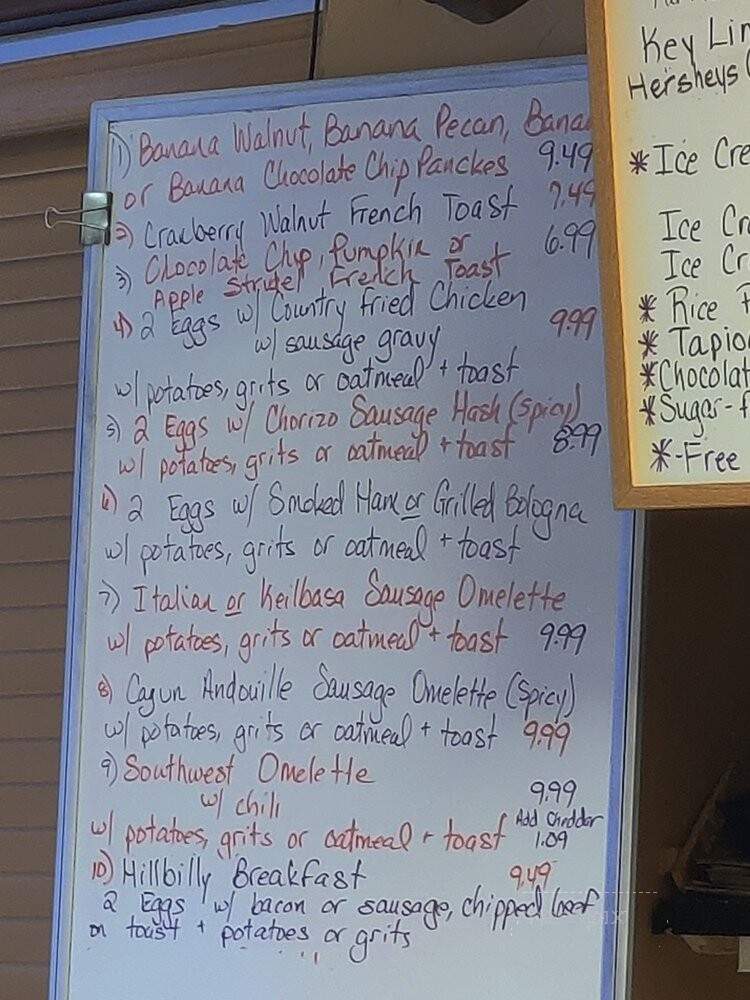 1) Banana Walnut, Banana Pecan, Bana
or Banana Chocolate Chip Panckes 9.49
2) Cranberry Walnut French Toast 7.49
3) Chocolate Chip, Pumpkin or 6.99
Apple Strudel French Toast
4) 2 Eggs w/ Country Fried Chicken
w/ sausage gravy 9.99
w/ potatoes, grits or oatmeal + toast
5) 2 Eggs w/ Chorizo Sausage Hash (spicy)
w/ potatoes, grits or oatmeal + toast 8.99
6) 2 Eggs w/ Smoked Ham or Grilled Bologna
w/ potatoes, grits or oatmeal + toast
7) Italian or Keilbasa Sausage Omelette
w/ potatoes, grits or oatmeal + toast 9.99
8) Cajun Andouille Sausage Omelette (spicy)
w/ potatoes, grits or oatmeal + toast 9.99
9) Southwest Omelette
w/ chili 9.99
Add Cheddar
w/ potatoes, grits or oatmeal + toast 1.09
10) Hillbilly Breakfast 9.49
2 Eggs w/ bacon or sausage, chipped beef
on toast + potatoes or grits
Key Lim
Hersheys (
*Ice Cre
Ice Cr
Ice Cr
* Rice P
* Tapio
*Chocolat
*Sugar-f
*-Free